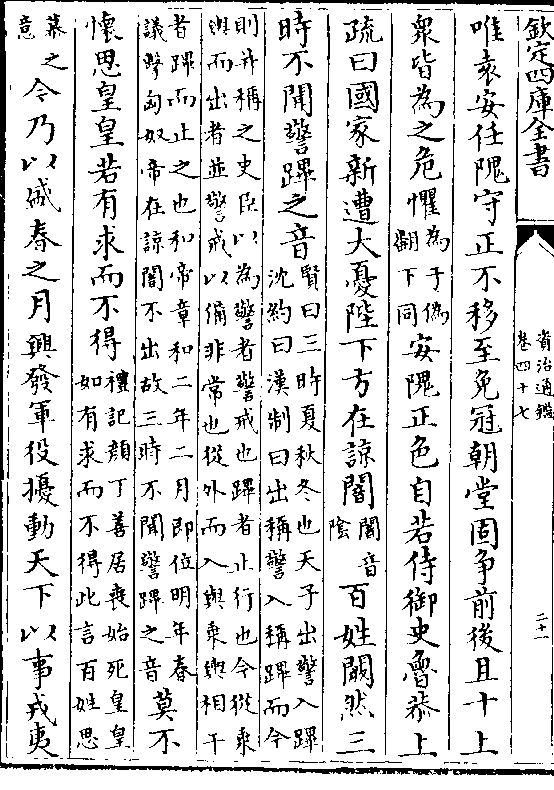 欽定四庫全書
資治通鑑
卷四十七
二十一
唯袁安任隗守正不移至免冠朝堂固争前後且十上
衆皆為之危懼為于偽翻下同安隗正色自若侍御史魯恭上
疏曰國家新遭大憂陛下方在諒闇闇音陰百姓闕然三
時不聞警蹕之音賢曰三時夏秋冬也天子出警入蹕沈約曰漢制曰出稱警入稱蹕而今
則并稱之史臣以為警者警戒也蹕者止行也今從乗輿而出者並警戒以備非常也從外而入輿乗輿相干
者蹕而止之也和帝章和二年二月即位明年春議擊匈奴帝在諒闇不出故三時不聞警蹕之音莫不
懷思皇皇若有求而不得禮記顔丁善居喪始死皇皇如有求而不得此言百姓思
慕之意今乃以盛春之月興發軍役擾動天下以事戎夷